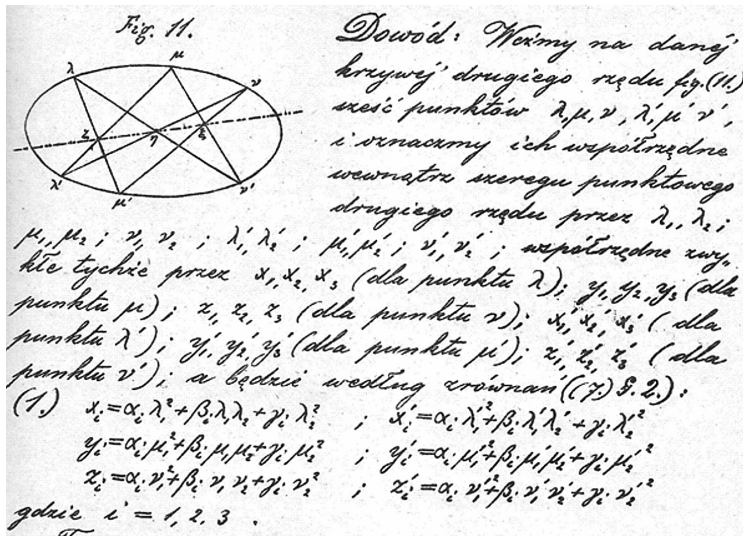 Fig. 11.
λ
μ
ν
ζ
η
ξ
λ'
μ'
ν'
Dowód: Weźmy na danéj
krzywéj drugiego rzędu fig. (11.)
sześć punktów λ, μ, ν, λ', μ' ν',
i oznaczmy ich współrzędne
wewnątrz szeregu punktowego
drugiego rzędu przez λ₁, λ₂;
μ₁, μ₂; ν₁, ν₂; λ₁', λ₂'; μ₁', μ₂'; ν₁', ν₂'; współrzędne zwy„
kłe tychże przez x₁, x₂, x₃ (dla punktu λ); y₁, y₂, y₃ (dla
punktu μ); z₁, z₂, z₃ (dla punktu ν); x₁', x₂', x₃' (dla
punktu λ'); y₁', y₂', y₃' (dla punktu μ'); z₁', z₂', z₃' (dla
punktu ν'); a będzie według zrównań ((7.) §. 2.):
(1.) xᵢ = αᵢ λ₁² + βᵢ λ₁ λ₂ + γᵢ λ₂² ; xᵢ' = αᵢ λ₁'² + βᵢ λ₁' λ₂' + γᵢ λ₂'²
yᵢ = αᵢ μ₁² + βᵢ μ₁ μ₂ + γᵢ μ₂² ; yᵢ' = αᵢ μ₁'² + βᵢ μ₁' μ₂' + γᵢ μ₂'²
zᵢ = αᵢ ν₁² + βᵢ ν₁ ν₂ + γᵢ ν₂² ; zᵢ' = αᵢ ν₁'² + βᵢ ν₁' ν₂' + γᵢ ν₂'²
gdzie i = 1, 2, 3.